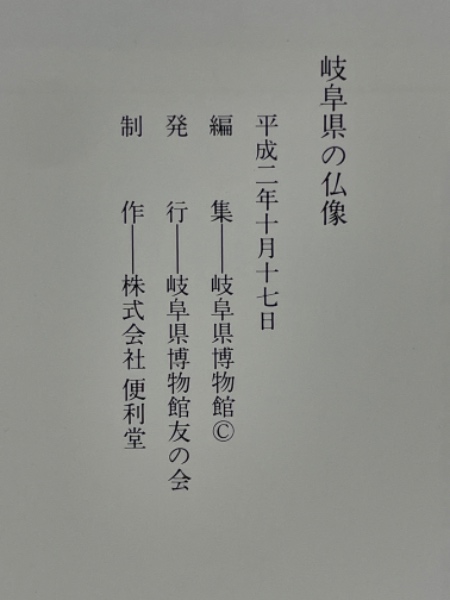 岐阜県の仏像
平成二年十月十七日
編　集──岐阜県博物館Ⓒ
発　行──岐阜県博物館友の会
制　作──株式会社 便利堂